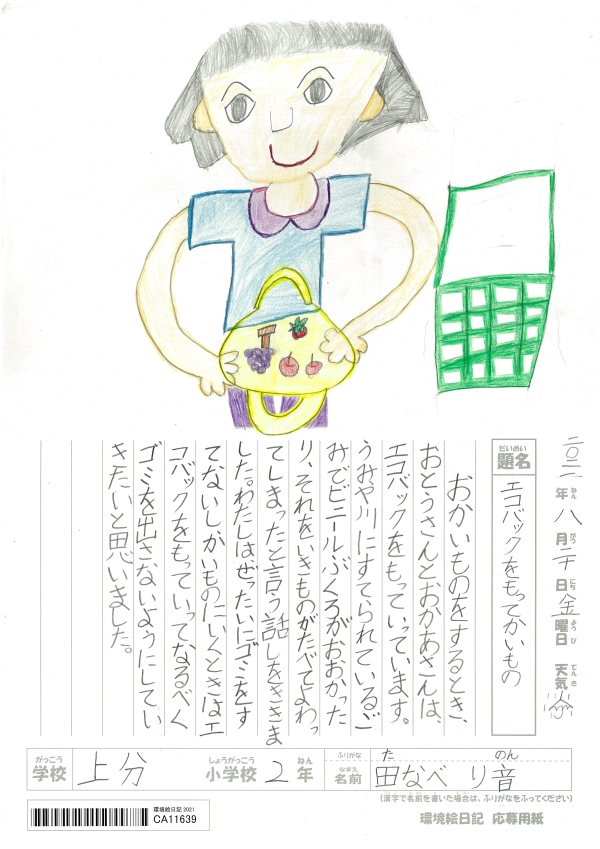 二〇二一年八月二十日金曜日 天気
ねん がつ にち ようび てんき
だいめい
題名
エコバックをもってかいもの
おかいものをするとき、
おとうさんとおかあさんは、
エコバックをもっていっています。
うみや川にすてられているご
みでビニールぶくろがおおかった
り、それをいきものがたべてよわっ
てしまったと言う話しをききま
した。わたしはぜったいにゴミをす
てないしかいものにいくときはエ
コバックをもっていってなるべく
ゴミを出さないようにしてい
きたいと思いました。
がっこう しょうがっこう ねん ふりがな た のん
学校 上分 小学校 2年 なまえ 名前 田なべ り音
(漢字で名前を書いた場合は、ふりがなをふってください)
環境絵日記 2021
CA11639
環境絵日記 応募用紙